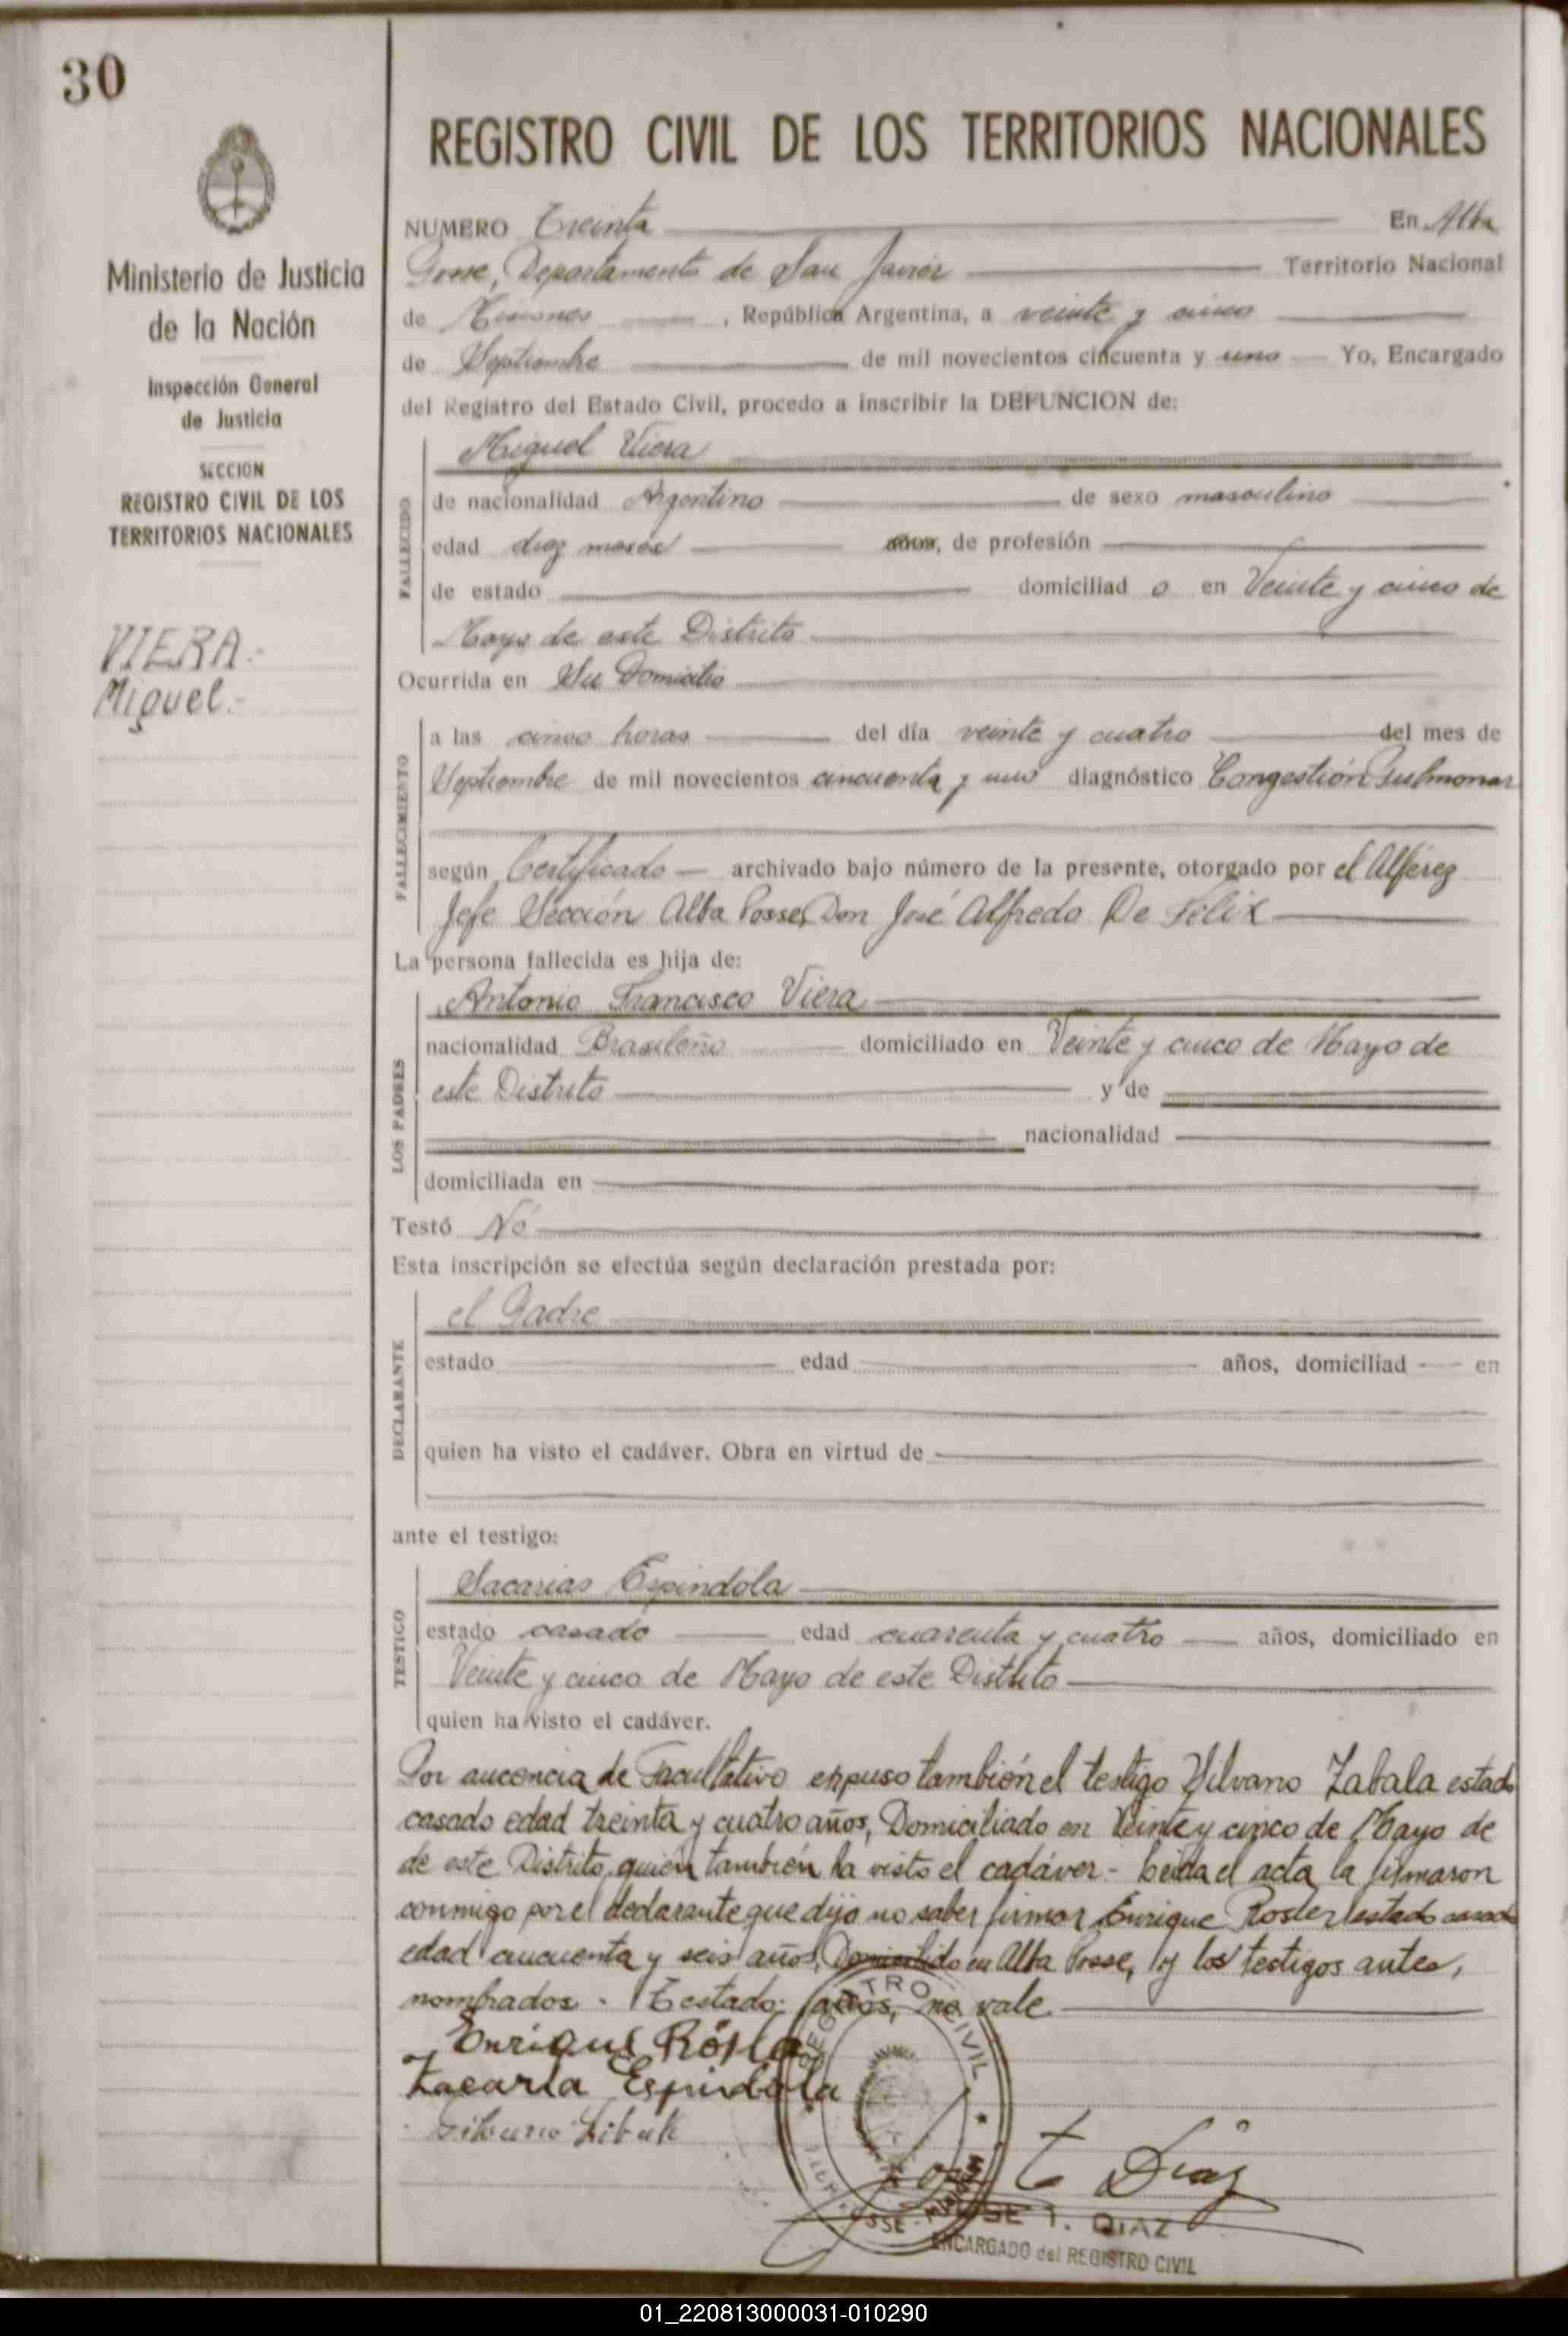 30
Ministerio de Justicia
de la Nación
Inspección General
de Justicia
SECCION
REGISTRO CIVIL DE LOS
TERRITORIOS NACIONALES
VIERA.-
Miguel.-
REGISTRO CIVIL DE LOS TERRITORIOS NACIONALES
NUMERO Treinta En Alba
Posse, Departamento de San Javier Territorio Nacional
de Misiones, República Argentina, a veinte y cinco
de Septiembre de mil novecientos cincuenta y uno Yo, Encargado
del Registro del Estado Civil, procedo a inscribir la DEFUNCION de:
FALLECIDO
Miguel Viera
de nacionalidad Argentino de sexo masculino
edad diez meses años, de profesión
de estado domiciliad o en Veinte y cinco de
Mayo de este Distrito
Ocurrida en Su Domicilio
FALLECIMIENTO
a las cinco horas del día veinte y cuatro del mes de
Septiembre de mil novecientos cincuenta y uno diagnóstico Congestión Pulmonar
según Certificado archivado bajo número de la presente, otorgado por el Alférez
Jefe Sección Alba Posse, Don José Alfredo De Felix
La persona fallecida es hija de:
LOS PADRES
Antonio Francisco Viera
nacionalidad Brasileño domiciliado en Veinte y cinco de Mayo de
este Distrito y de
nacionalidad
domiciliada en
Testó No
Esta inscripción se efectúa según declaración prestada por:
DECLARANTE
el Padre
estado edad años, domiciliad en
quien ha visto el cadáver. Obra en virtud de
ante el testigo:
TESTIGO
Sacarias Espindola
estado casado edad cuarenta y cuatro años, domiciliado en
Veinte y cinco de Mayo de este Distrito
quien ha visto el cadáver.
Por aucencia de Facultativo expuso también el testigo Silvano Zabala estado
casado edad treinta y cuatro años, Domiciliado en Veinte y cinco de Mayo de
de este Distrito, quien también ha visto el cadáver - Leida el acta la firmaron
conmigo por el declarante que dijo no saber firmar Enrique Rosler estado casado
edad cincuenta y seis años, Domiciliado en Alba Posse, y los testigos antes,
nombrados. Testado: años, no vale
Enrique Rösler
Zacaria Espindola
REGISTRO CIVIL
Diaz
JOSE T. DIAZ
ENCARGADO del REGISTRO CIVIL
01_220813000031-010290